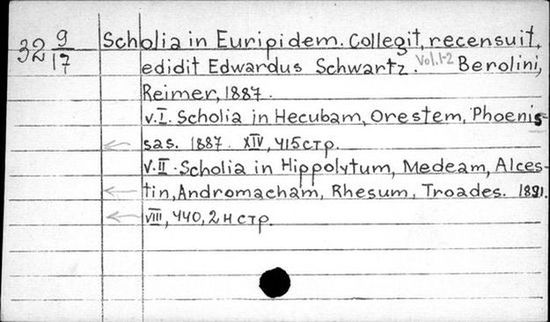 32 9/17
Scholia in Euripidem. Collegit, recensuit,
edidit Edwardus Schwartz. Vol. 1-2 Berolini,
Reimer, 1887.
v. I. Scholia in Hecubam, Orestem, Phoenis-
sas. 1887. XIV, 415 стр.
V. II. Scholia in Hippolytum, Medeam, Alces-
tin, Andromacham, Rhesum, Troades. 1891.
VIII, 440, 2 н стр.